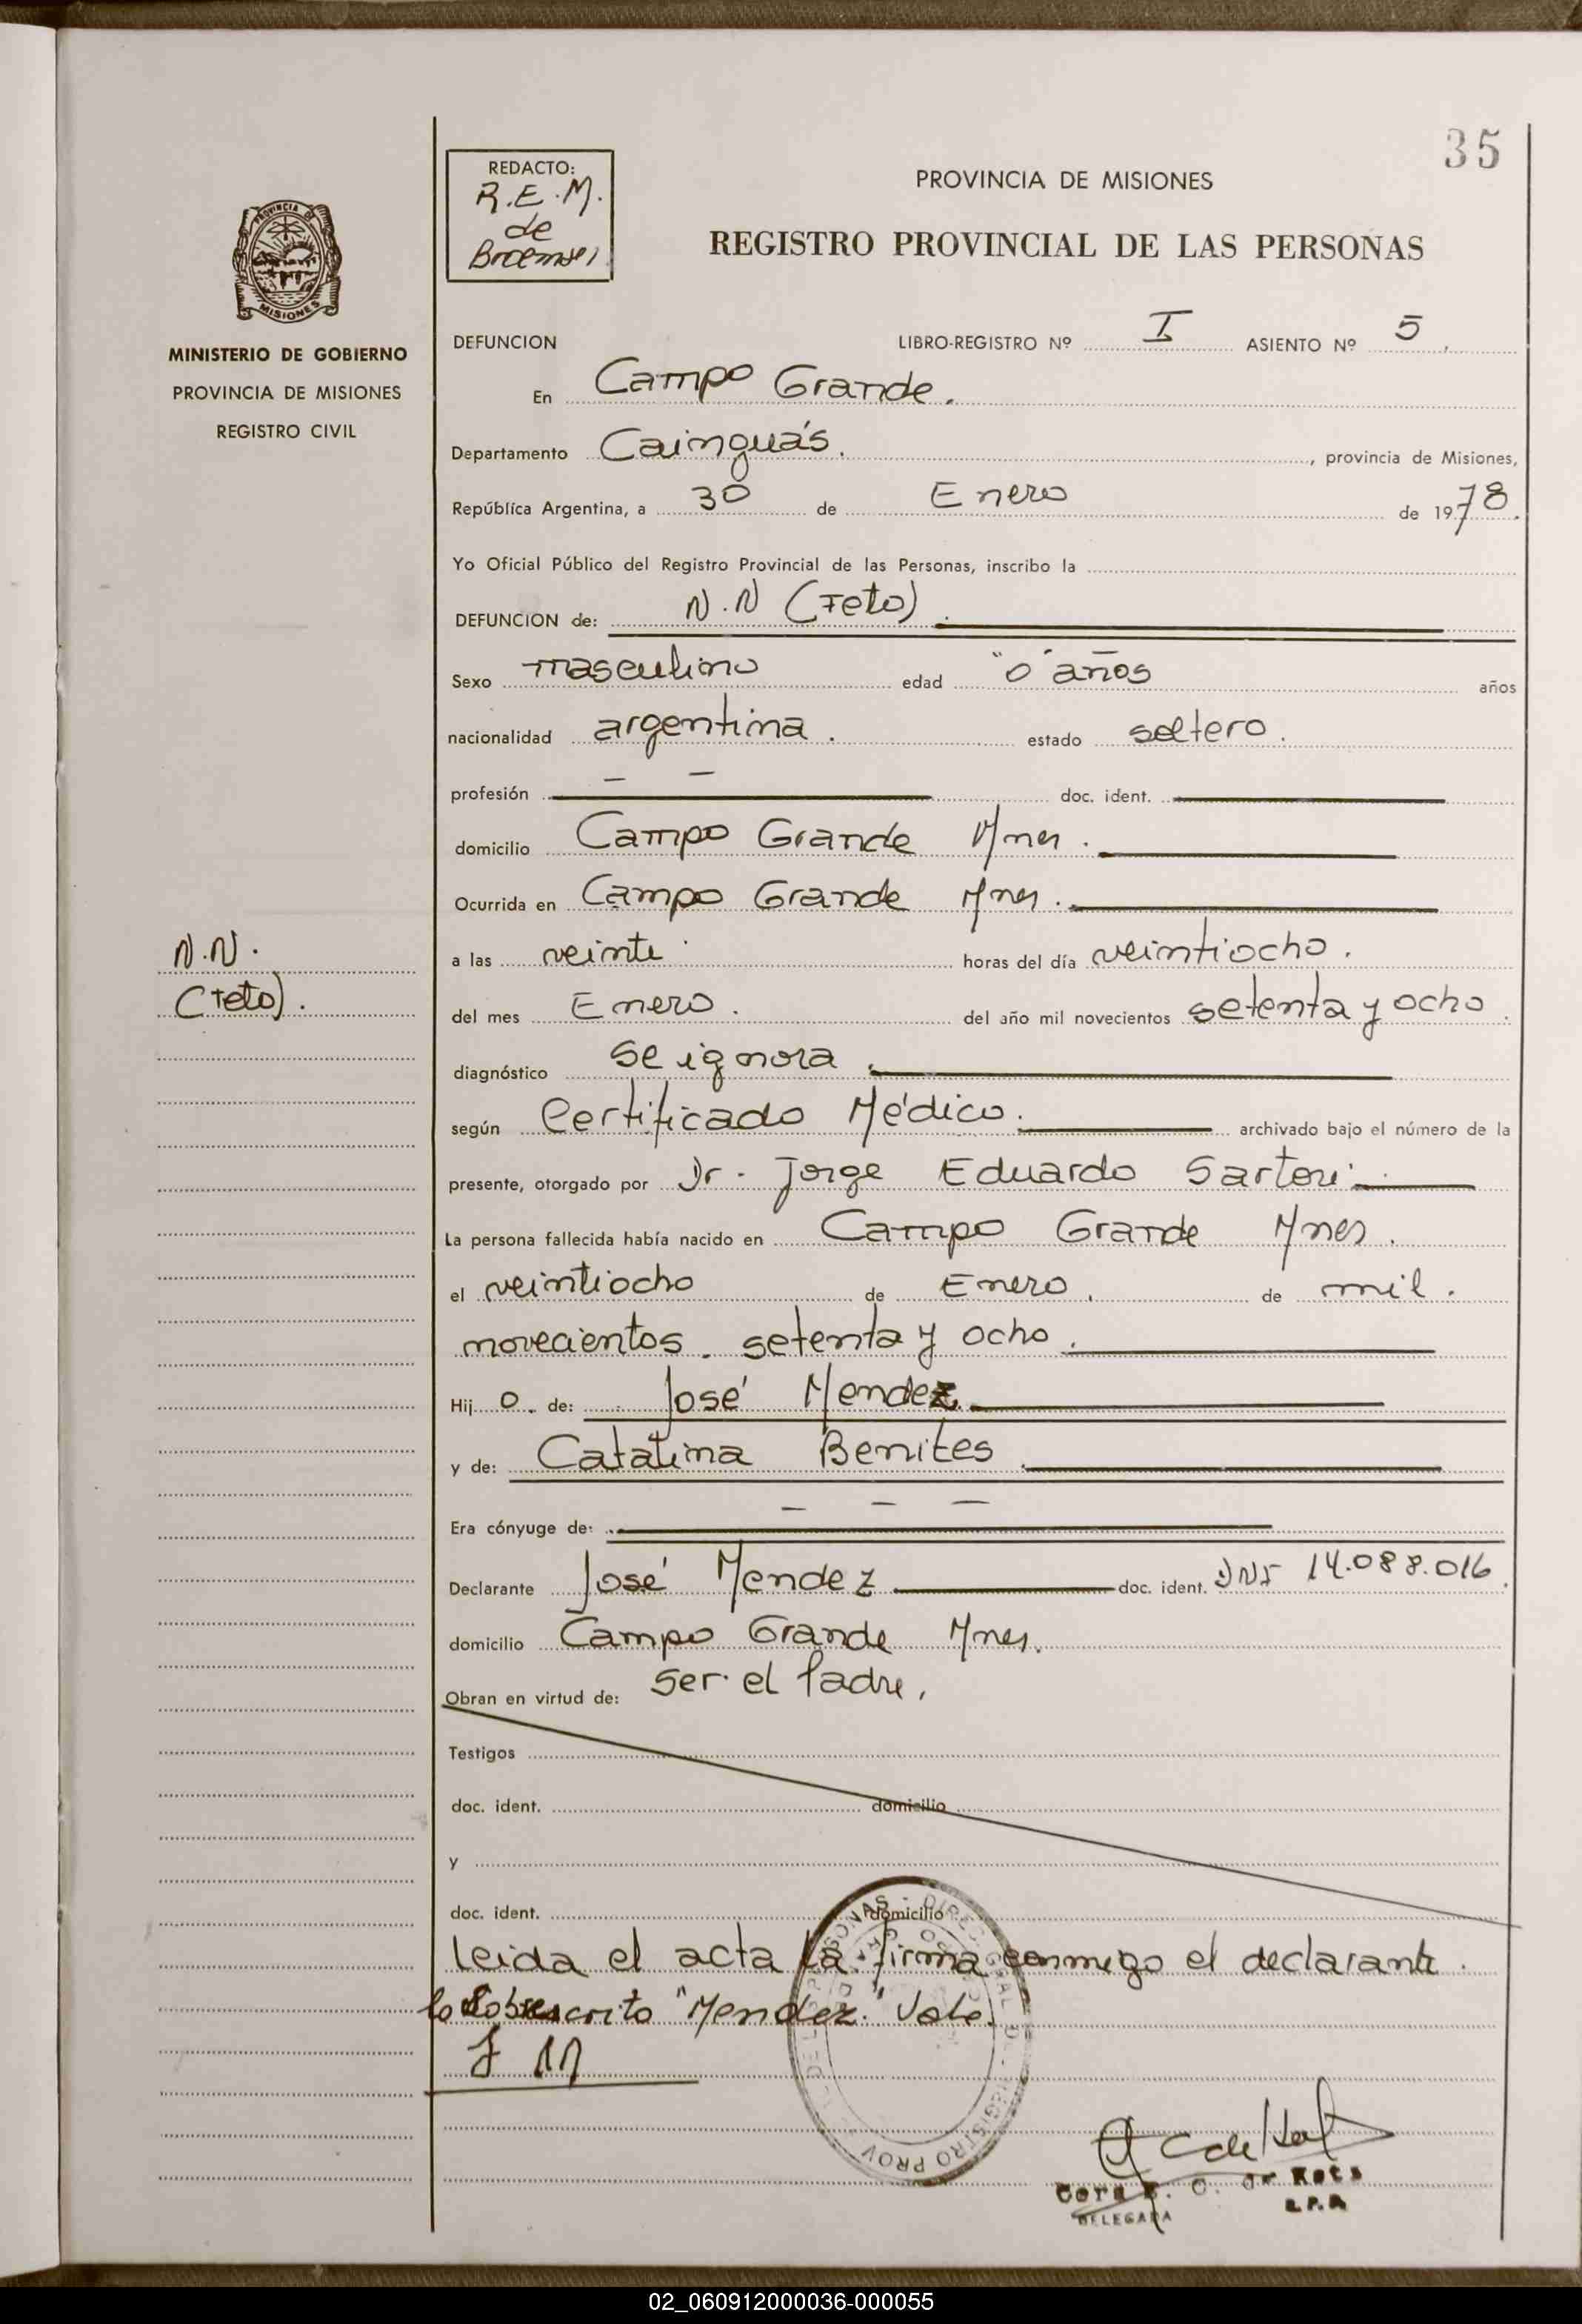 35
PROVINCIA DE MISIONES
MINISTERIO DE GOBIERNO
PROVINCIA DE MISIONES
REGISTRO CIVIL
REDACTO:
R.E.M.
de
PROVINCIA DE MISIONES
REGISTRO PROVINCIAL DE LAS PERSONAS
DEFUNCION LIBRO-REGISTRO Nº I ASIENTO Nº 5
En Campo Grande.
Departamento Cainguás. , provincia de Misiones,
República Argentina, a 30 de Enero de 1978.
Yo Oficial Público del Registro Provincial de las Personas, inscribo la
DEFUNCION de: N.N (Feto)
Sexo masculino edad "0" años años
nacionalidad argentina. estado soltero.
profesión - - doc. ident.
domicilio Campo Grande Mnes.
Ocurrida en Campo Grande Mnes.
N.N.
(Feto).
a las veinte horas del día veintiocho.
del mes Enero. del año mil novecientos setenta y ocho.
diagnóstico se ignora.
según Certificado Médico. archivado bajo el número de la
presente, otorgado por Dr. Jorge Eduardo Sartori
La persona fallecida había nacido en Campo Grande Mnes.
el veintiocho de Enero, de mil.
novecientos. setenta y ocho.
Hij o. de: José Mendez.
y de: Catalina Benites.
Era cónyuge de: - - -
Declarante José Mendez doc. ident. DNI 14.088.016.
domicilio Campo Grande Mnes.
Obran en virtud de: Ser el Padre,
Testigos
doc. ident. domicilio
y
doc. ident. domicilio
leida el acta la firma conmigo el declarante.
lo Sobrescrito "Mendez." Vale.
J M
DELEGADA
02_060912000036-000055